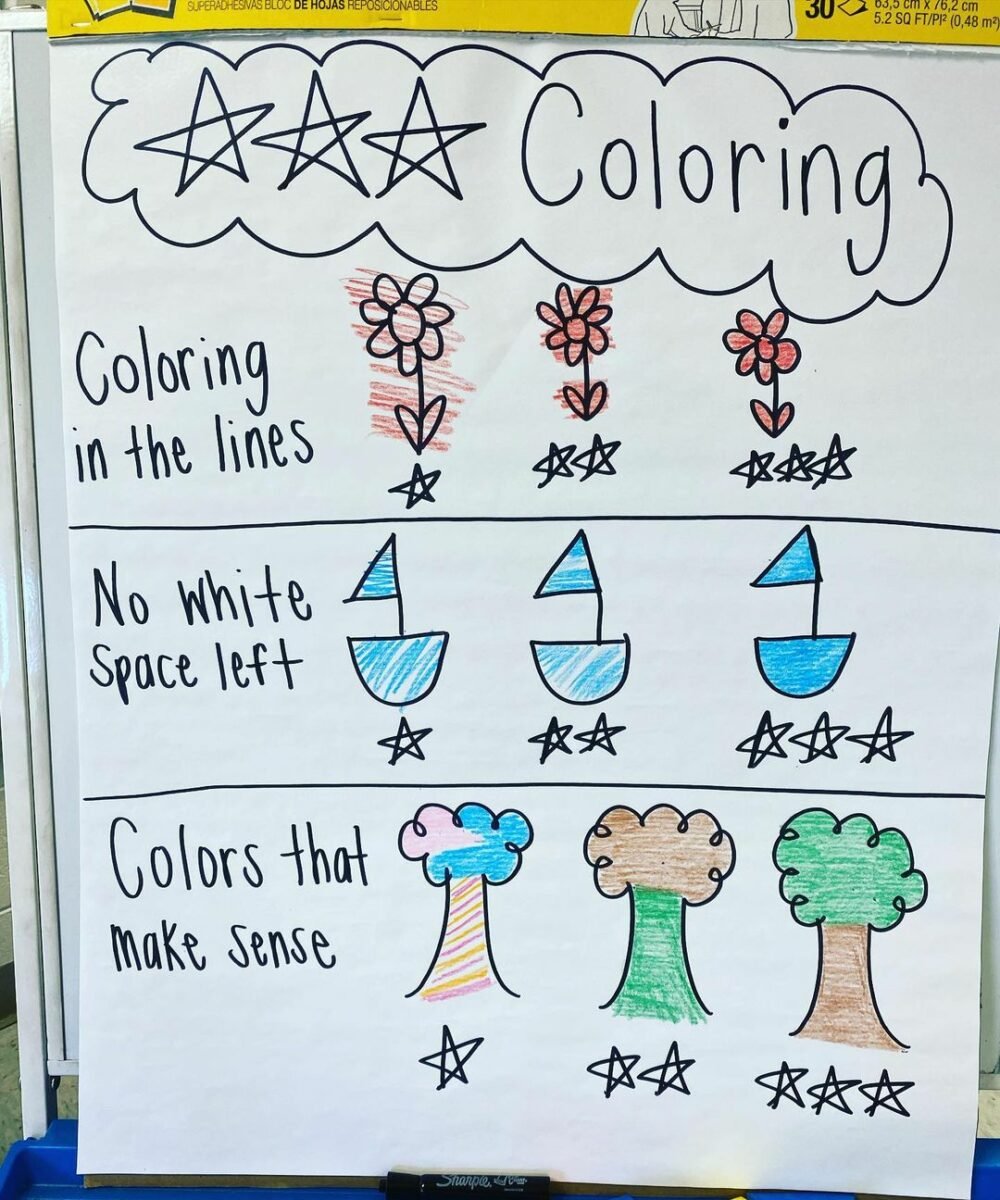 SUPERADHESIVAS BLOC DE HOJAS REPOSICIONABLES
30
63,5 cm x 76,2 cm
5.2 SQ FT/PI² (0,48 m²)
Coloring
Coloring
in the lines
No white
Space left
Colors that
make sense
Sharpie